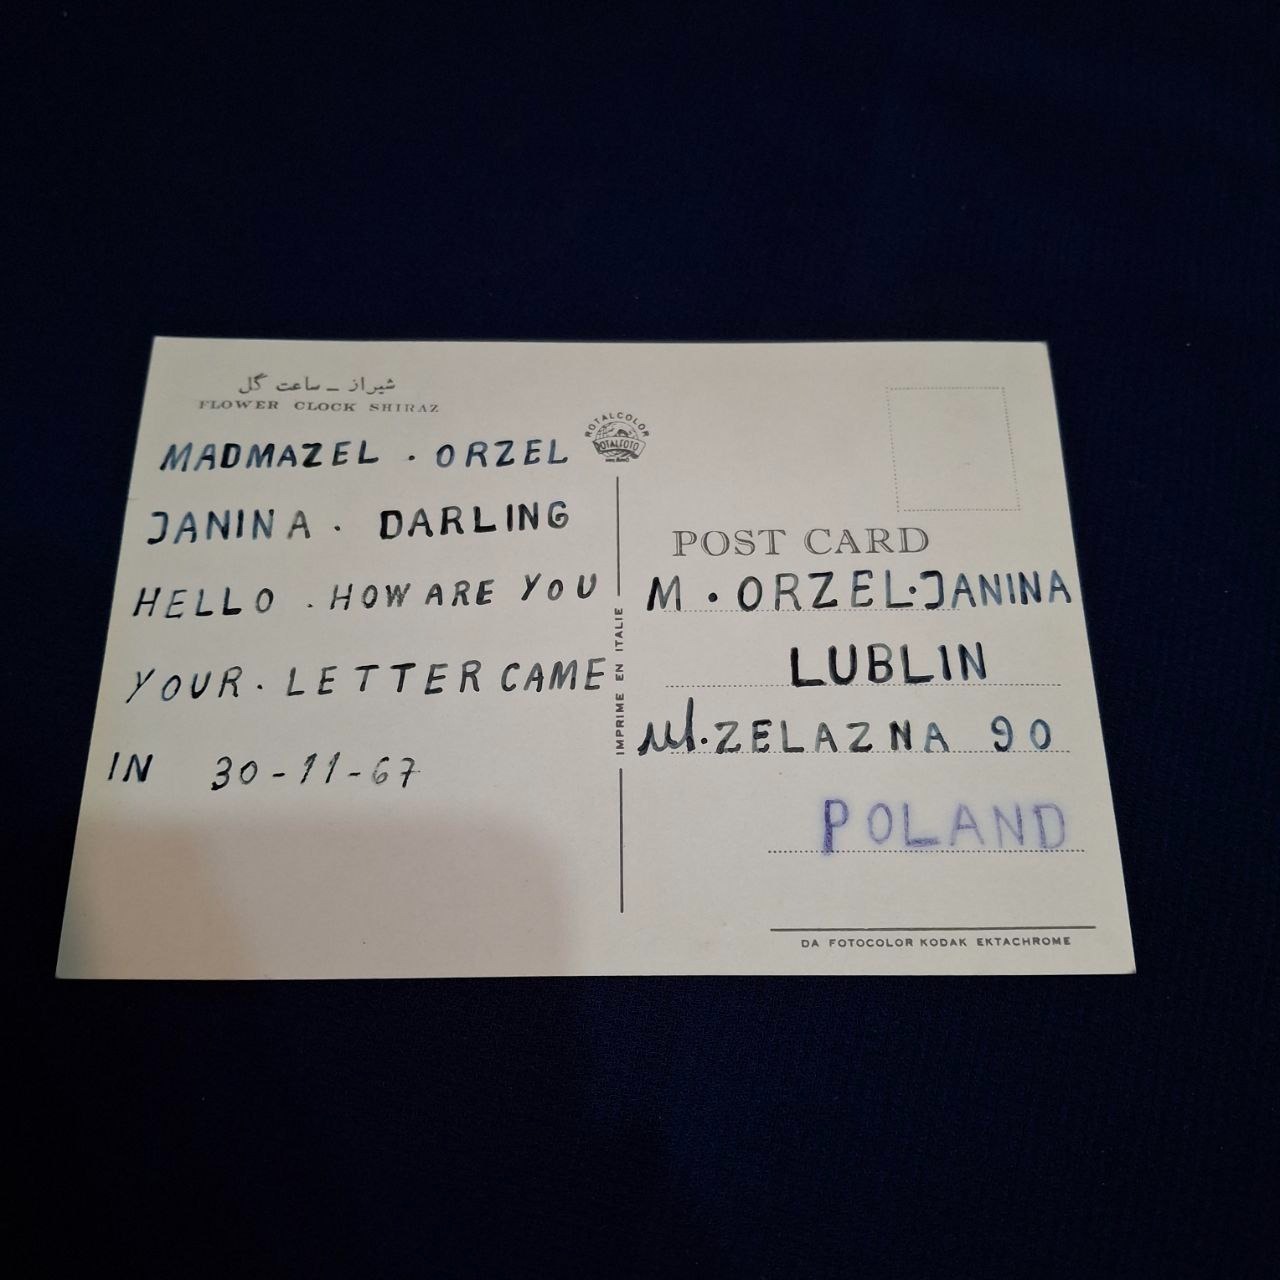 شیراز ـ ساعت گل
FLOWER CLOCK SHIRAZ
MADMAZEL . ORZEL
JANINA . DARLING
HELLO . HOW ARE YOU
YOUR . LETTER CAME
IN 30-11-67
ROTALCOLOR
ROTALFOTO
IMPRIME EN ITALIE
POST CARD
M . ORZEL.JANINA
LUBLIN
ul. ZELAZNA 90
POLAND
DA FOTOCOLOR KODAK EKTACHROME